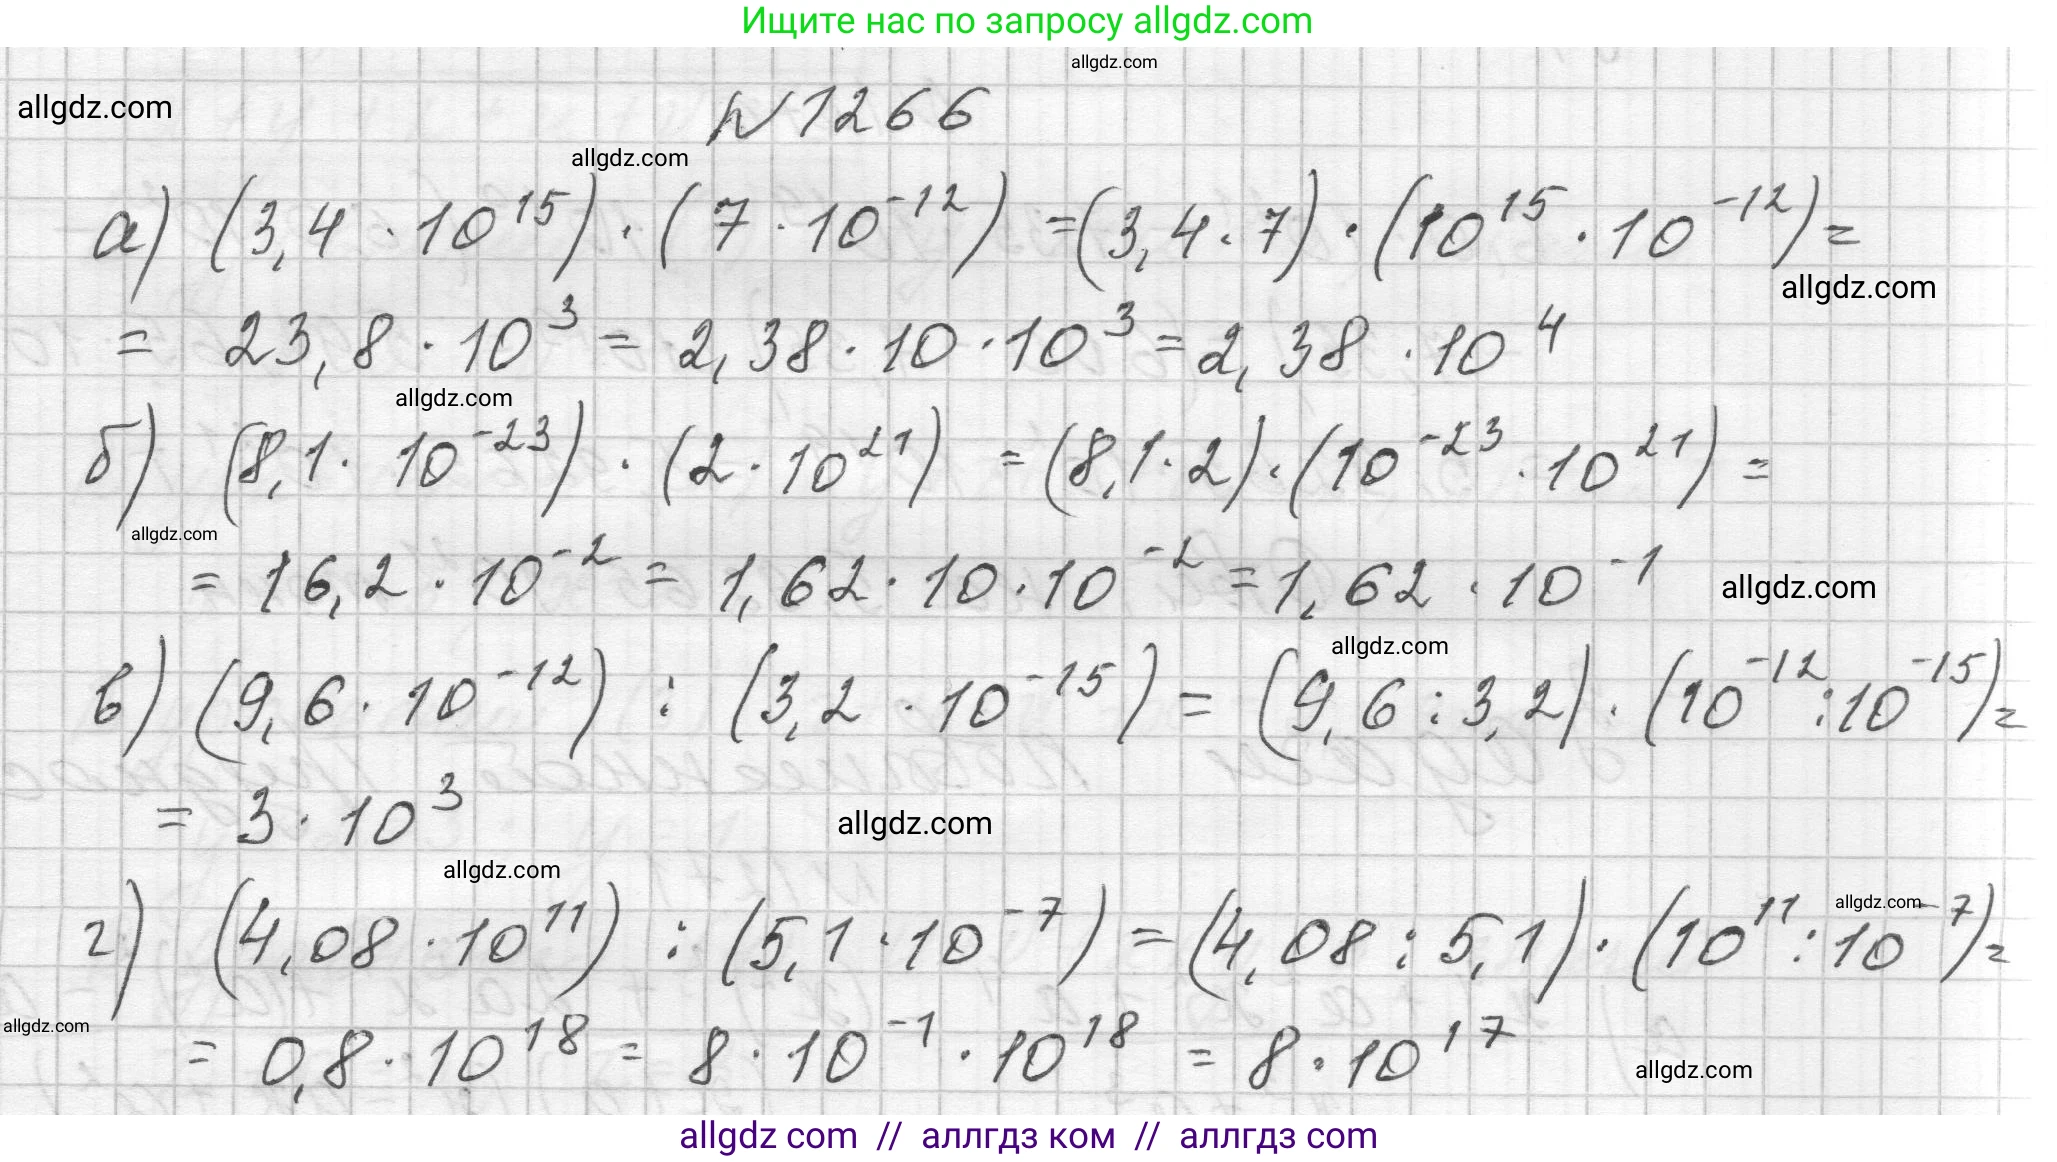 Ищите нас по запросу allgdz.com
allgdz.com
allgdz.com
№ 1266
allgdz.com
а) (3,4 · 10^15) · (7 · 10^-12) = (3,4 · 7) · (10^15 · 10^-12) =
allgdz.com
= 23,8 · 10^3 = 2,38 · 10 · 10^3 = 2,38 · 10^4
allgdz.com
б) (8,1 · 10^-23) · (2 · 10^21) = (8,1 · 2) · (10^-23 · 10^21) =
allgdz.com
= 16,2 · 10^-2 = 1,62 · 10 · 10^-2 = 1,62 · 10^-1
allgdz.com
allgdz.com
в) (9,6 · 10^-12) : (3,2 · 10^-15) = (9,6 : 3,2) · (10^-12 : 10^-15) =
= 3 · 10^3
allgdz.com
allgdz.com
allgdz.com
г) (4,08 · 10^11) : (5,1 · 10^-7) = (4,08 : 5,1) · (10^11 : 10^-7) =
allgdz.com
= 0,8 · 10^18 = 8 · 10^-1 · 10^18 = 8 · 10^17
allgdz.com
allgdz com // аллгдз ком // аллгдз com